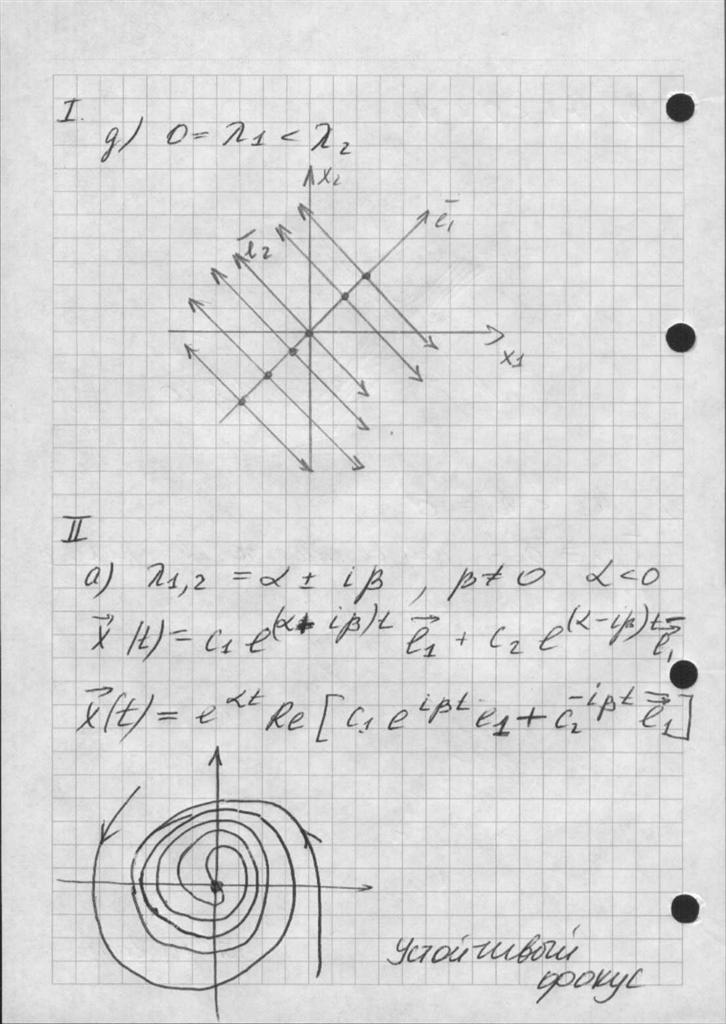 I.
g) 0 = λ1 < λ2
x2
e̅1
e̅2
x1
II
a) λ1,2 = α ± iβ , β ≠ 0 α < 0
x⃗(t) = c1 e^(α + iβ)t e⃗1 + c2 e^(α - iβ)t e̅⃗1
x⃗(t) = e^αt Re [ c1 e^iβt e1 + c2^-iβt e̅⃗1 ]
Устойчивый
фокус